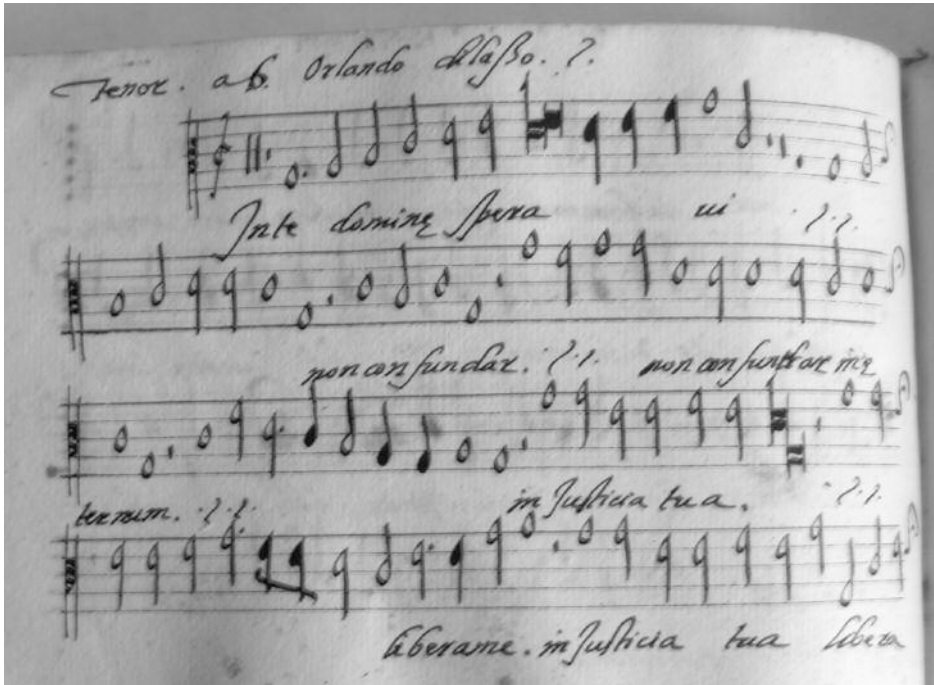 Tenor. ab. Orlando dilaßo. 2.
Inte domine spera ui .2.2.
non confundar. .2.2. non confundar in ę
ternum. .2.2. in Justicia tua. .2.2.
liberame. in Justicia tua libera